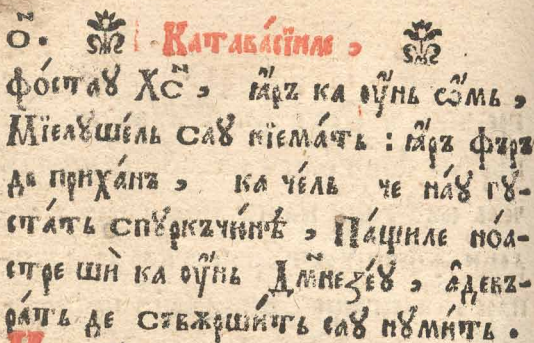 о҃. Катавасїиле,
фо́стау Хс҃, ꙗ҆́ръ ка ѹ҆́нь ѡ҆́мь,
Мїелꙋше́ль сау кїема́ть : ꙗ҆́ръ фъръ
де приха́нъ, ка че́ль че на́ꙋ гꙋ-
ста́ть спꙋркъчю́нѣ, Па́щиле но́а-
стре шѝ ка ѹ҆́нь Дм҃незе́ꙋ, а҆девъ-
ра́ть де свѫрши́ть сау нꙋми́ть.